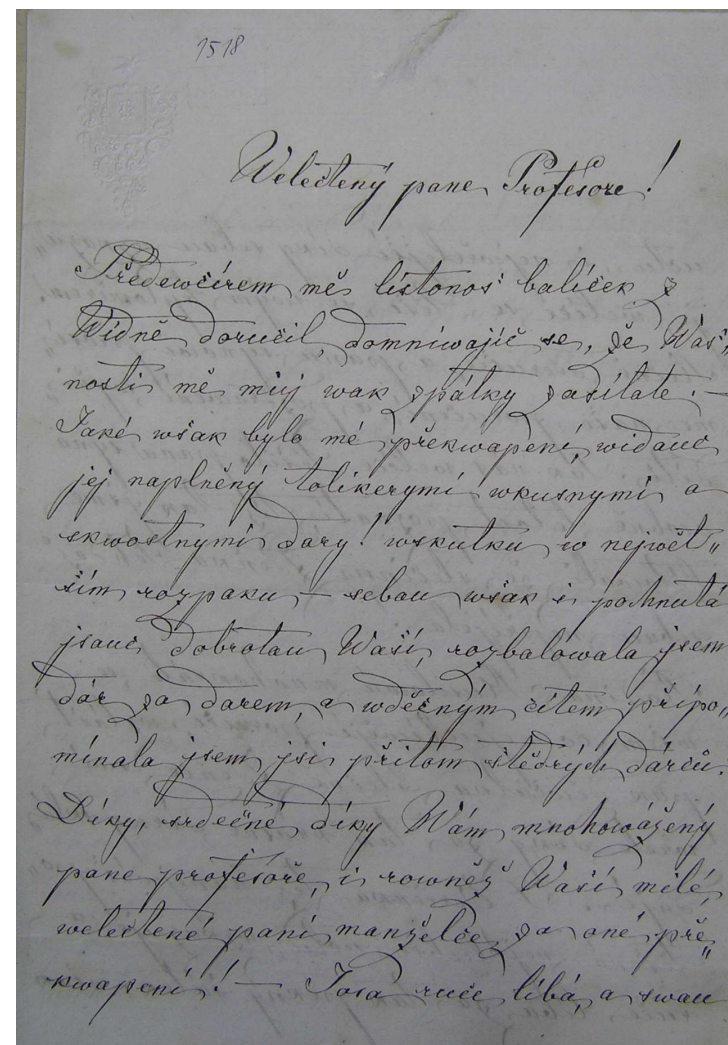 1518
Welectený pane Profesore!
Předewčírem mě listonoš balíček z
Wídně doručil, domniwajíc se, že Waš„
nosti mě můj wak zpátky zasílate. —
Jaké wšak bylo mé překwapení, widauc
jej naplněný tolikerymi wkusnymi a
skwostnymi dary! wskutku w nejwět„
ším rozpaku — sebau wšak i pohnutá
jsauc dobrotau Waší, rozbalowala jsem
dár za darem, a wděčným citem připo„
mínala jsem jsi přitom štědrých dárců.
Díky, srdečné díky Wám mnohowážený
pane profesoře, i rowněž Waší milé,
welectěné paní manželce, za oné pře„
kwapení! — Josa ruce líbá, a swau